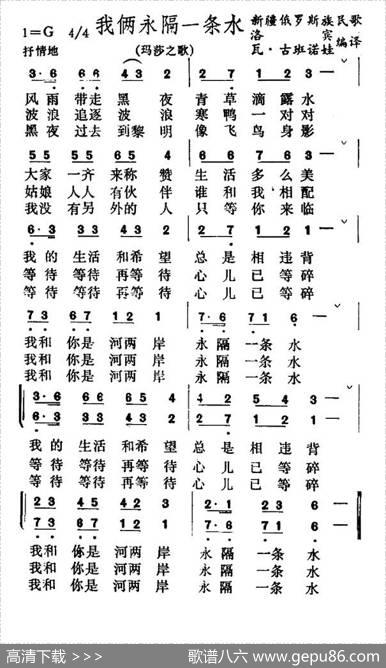 我俩永隔一条水
1=G 4/4
新疆俄罗斯族民歌
洛宾
瓦·古班诺娃编译
抒情地
(玛莎之歌)
3·6 65 (43) 3 2 7 1 2 3 —
风雨 带走 黑 夜 青草 滴露水
波浪 追逐 波 浪 寒鸭 一对对
黑夜 过去 到黎 明 像飞 鸟身影
55 55 65 4
大家 一齐 来称 赞 生活 多么美
姑娘 人人 有伙 伴 谁和 我相配
我没 有另 外的 人 只等 你来临
6·3
我的 生活 和希 望 总是 相违背
等待 等待 再等 待 心儿 已等碎
等待 等待 再等 待 心儿 已等碎
73 67 12 1 7·6 71 6 —
我和 你是 河两 岸 永隔 一条 水
我和 你是 河两 岸 永隔 一条 水
我和 你是 河两 岸 永隔 一条 水
3·6
6·3
我的 生活 和希 望 总是 相违背
等待 等待 再等 待 心儿 已等碎
等待 等待 再等 待 心儿 已等碎
23 45 42 1 2·1 23 6 —
73 67 12 1 7·6 71 6 —
我和 你是 河两 岸 永隔 一条 水
我和 你是 河两 岸 永隔 一条 水
我和 你是 河两 岸 永隔 一条 水
高清下载 >>> 歌谱八六 www.gepu86.com